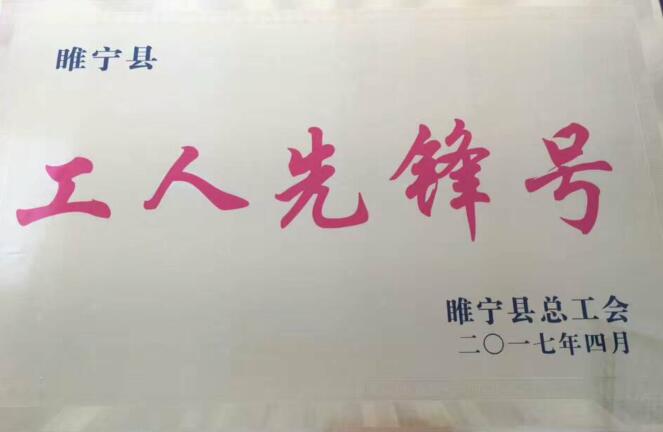 睢宁县
工人先锋号
睢宁县总工会
二〇一七年四月